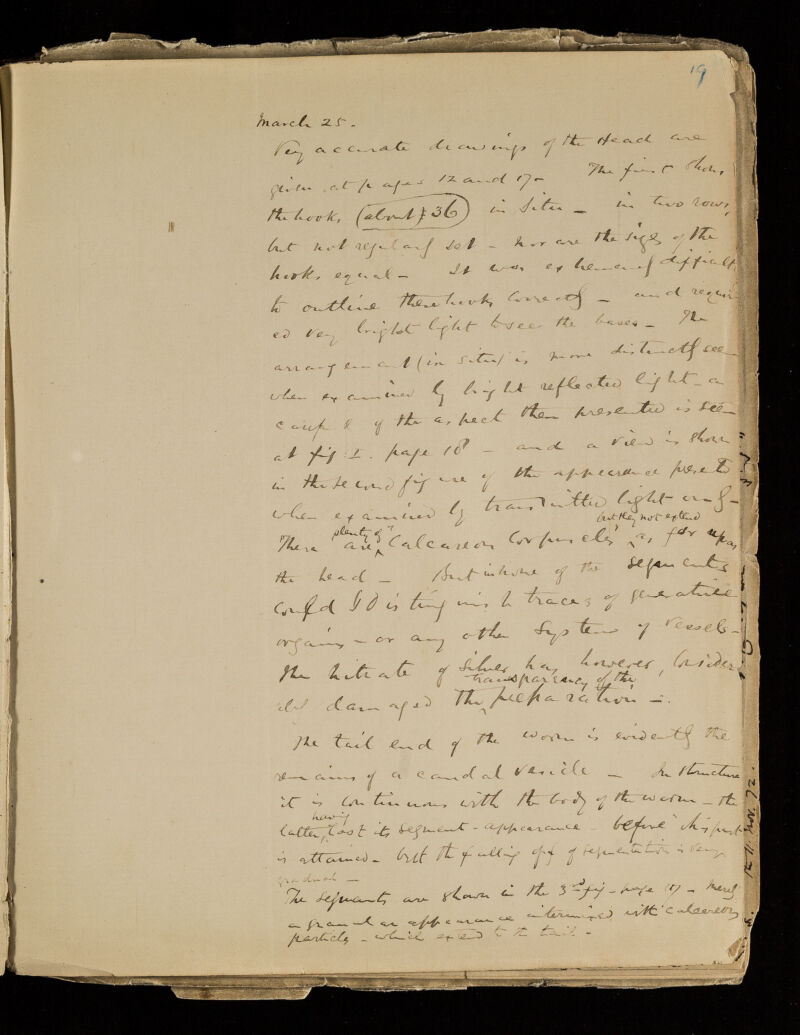 19
March 25.
Very accurate drawings of the Head are
given at pages 12 and 17. The first shows
the hooks (about 36) in situ - in two rows,
but not regularly set - nor are the sizes of the
hooks equal - It was extremely difficult
to outline these hooks correctly - and requir
ed very bright light to see the bases - The
arrangement (in situ) is more distinctly seen
when examined by bright reflected light - a
of the aspect then presented is seen
at fig 1. page 18 - and a view is shown
in the second figure of the appearance presented
when examined by transmitted light only -
plenty of but they not extend
There are Calcareous Corpuscles as far up as
the head - But in none of the segments
could I distinguish traces of generative
organs - or any other system of vessels -
The nitrate of silver has, however, consider
transparency of the
ably damaged the preparation -.
The tail end of the worm is evidently the
remains of a caudal vesicle - In structure
it is continuous with the body of the worm - the
having
latter, lost its segment-appearance - before this part
is attained - but the falling off of segmentation is very
gradual -
The segments are shown in the 3rd fig - page 17 - merely
a granular appearance intermixed with calcareous
particles - which extend to the tail -
Nov. 72.